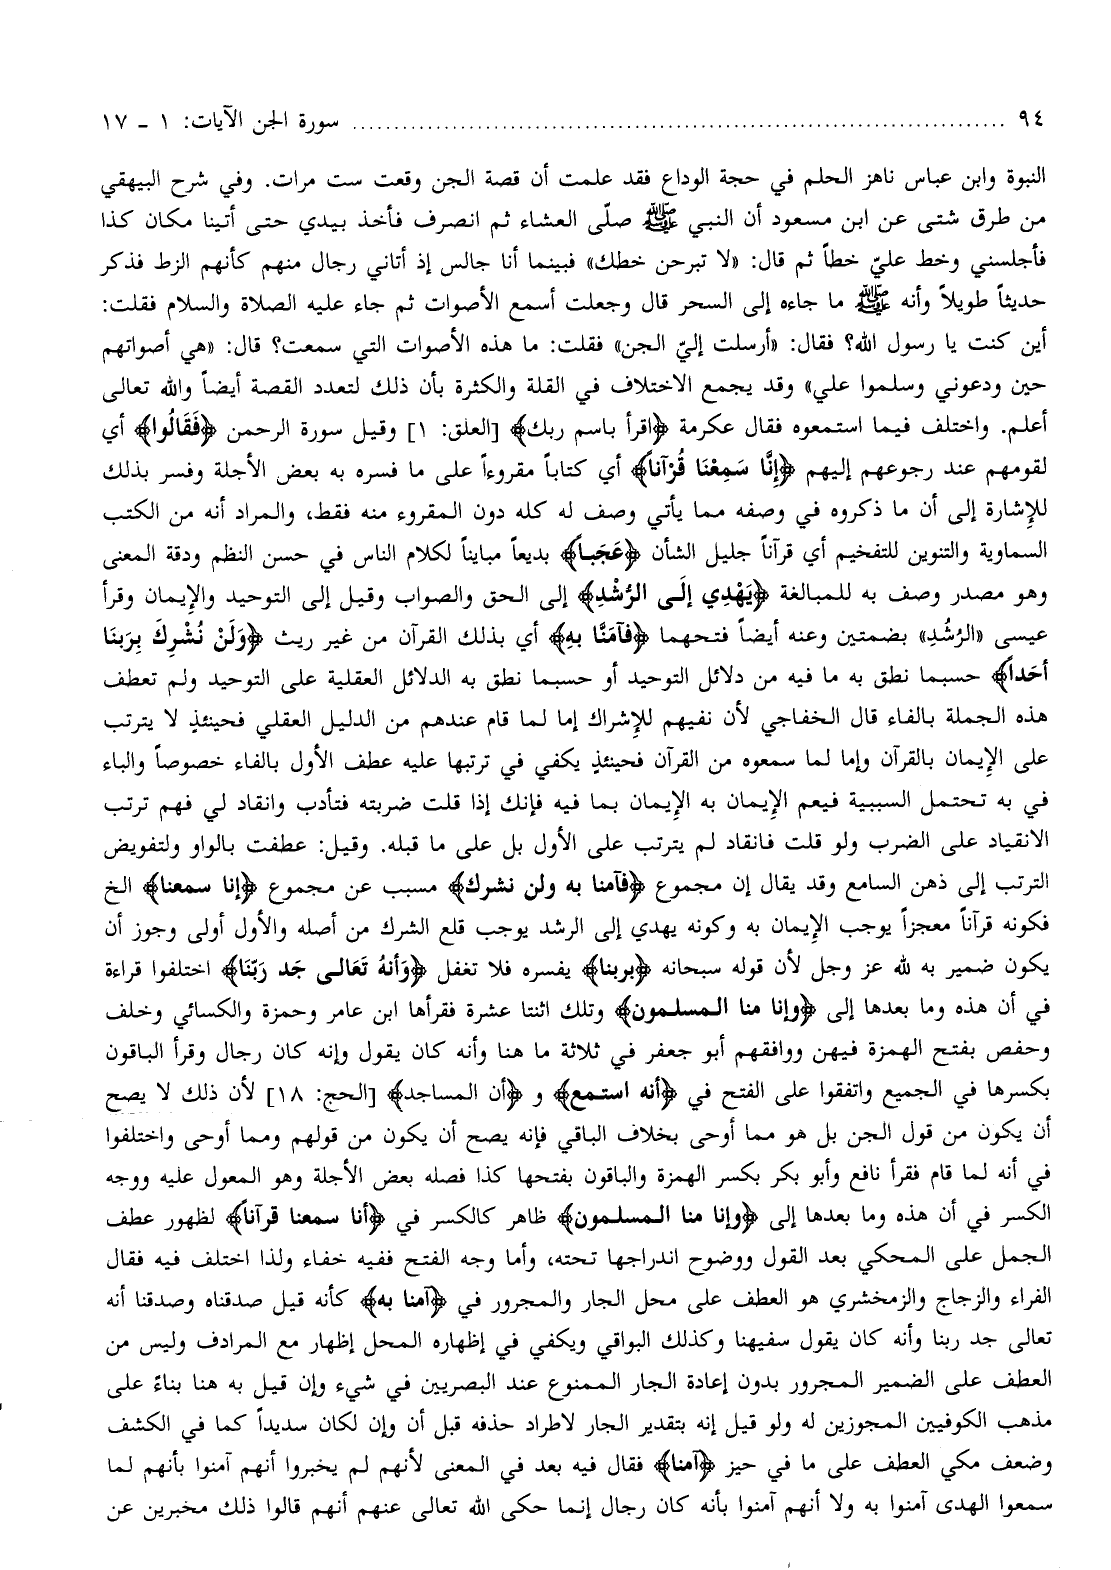 ٩٤ ........................................................ سورة الجن الآيات: ١ ـ ١٧
النبوة وابن عباس ناهز الحلم في حجة الوداع فقد علمت أن قصة الجن وقعت ست مرات. وفي شرح البيهقي
من طرق شتى عن ابن مسعود أن النبي ﷺ صلّى العشاء ثم انصرف فأخذ بيدي حتى أتينا مكان كذا
فأجلسني وخط عليّ خطاً ثم قال: «لا تبرحن خطك» فبينما أنا جالس إذ أتاني رجال منهم كأنهم الزط فذكر
حديثاً طويلاً وأنه ﷺ ما جاءه إلى السحر قال وجعلت أسمع الأصوات ثم جاء عليه الصلاة والسلام فقلت:
أين كنت يا رسول الله؟ فقال: «أرسلت إليّ الجن» فقلت: ما هذه الأصوات التي سمعت؟ قال: «هي أصواتهم
حين ودعوني وسلموا علي» وقد يجمع الاختلاف في القلة والكثرة بأن ذلك لتعدد القصة أيضاً والله تعالى
أعلم. واختلف فيما استمعوه فقال عكرمة ﴿اقرأ باسم ربك﴾ [العلق: ١] وقيل سورة الرحمن ﴿فَقَالُوا﴾ أي
لقومهم عند رجوعهم إليهم ﴿إِنَّا سَمِعْنَا قُرْآناً﴾ أي كتاباً مقروءاً على ما فسره به بعض الأجلة وفسر بذلك
للإشارة إلى أن ما ذكروه في وصفه مما يأتي وصف له كله دون المقروء منه فقط، والمراد أنه من الكتب
السماوية والتنوين للتفخيم أي قرآناً جليل الشأن ﴿عَجَباً﴾ بديعاً مبايناً لكلام الناس في حسن النظم ودقة المعنى
وهو مصدر وصف به للمبالغة ﴿يَهْدِي إِلَى الرُشْدِ﴾ إلى الحق والصواب وقيل إلى التوحيد والإيمان وقرأ
عيسى «الرُشُدِ» بضمتين وعنه أيضاً فتحهما ﴿فآمَنَّا بِهِ﴾ أي بذلك القرآن من غير ريث ﴿وَلَنْ نُشْرِكَ بِرَبِنَا
أحَداً﴾ حسبما نطق به ما فيه من دلائل التوحيد أو حسبما نطق به الدلائل العقلية على التوحيد ولم تعطف
هذه الجملة بالفاء قال الخفاجي لأن نفيهم للإشراك إما لما قام عندهم من الدليل العقلي فحينئذٍ لا يترتب
على الإيمان بالقرآن وإما لما سمعوه من القرآن فحينئذٍ يكفي في ترتبها عليه عطف الأول بالفاء خصوصاً والباء
في به تحتمل السببية فيعم الإيمان به الإيمان بما فيه فإنك إذا قلت ضربته فتأدب وانقاد لي فهم ترتب
الانقياد على الضرب ولو قلت فانقاد لم يترتب على الأول بل على ما قبله. وقيل: عطفت بالواو ولتفويض
الترتب إلى ذهن السامع وقد يقال إن مجموع ﴿فآمنا به ولن نشرك﴾ مسبب عن مجموع ﴿إنا سمعنا﴾ الخ
فكونه قرآناً معجزاً يوجب الإيمان به وكونه يهدي إلى الرشد يوجب قلع الشرك من أصله والأول أولى وجوز أن
يكون ضمير به لله عز وجل لأن قوله سبحانه ﴿بربنا﴾ يفسره فلا تغفل ﴿وَأنهُ تَعَالى جَد رَبّنَا﴾ اختلفوا قراءة
في أن هذه وما بعدها إلى ﴿وإنا منا المسلمون﴾ وتلك اثنتا عشرة فقرأها ابن عامر وحمزة والكسائي وخلف
وحفص بفتح الهمزة فيهن ووافقهم أبو جعفر في ثلاثة ما هنا وأنه كان يقول وإنه كان رجال وقرأ الباقون
بكسرها في الجميع واتفقوا على الفتح في ﴿أنه استمع﴾ و ﴿أن المساجد﴾ [الحج: ١٨] لأن ذلك لا يصح
أن يكون من قول الجن بل هو مما أوحى بخلاف الباقي فإنه يصح أن يكون من قولهم ومما أوحى واختلفوا
في أنه لما قام فقرأ نافع وأبو بكر بكسر الهمزة والباقون بفتحها كذا فصله بعض الأجلة وهو المعول عليه ووجه
الكسر في أن هذه وما بعدها إلى ﴿وإنا منا المسلمون﴾ ظاهر كالكسر في ﴿أنا سمعنا قرآناً﴾ لظهور عطف
الجمل على المحكي بعد القول ووضوح اندراجها تحته، وأما وجه الفتح ففيه خفاء ولذا اختلف فيه فقال
الفراء والزجاج والزمخشري هو العطف على محل الجار والمجرور في ﴿آمنا به﴾ كأنه قيل صدقناه وصدقنا أنه
تعالى جد ربنا وأنه كان يقول سفيهنا وكذلك البواقي ويكفي في إظهاره المحل إظهار مع المرادف وليس من
العطف على الضمير المجرور بدون إعادة الجار الممنوع عند البصريين في شيء وإن قيل به هنا بناءً على
مذهب الكوفيين المجوزين له ولو قيل إنه بتقدير الجار لاطراد حذفه قبل أن وإن لكان سديداً كما في الكشف
وضعف مكي العطف على ما في حيز ﴿آمنا﴾ فقال فيه بعد في المعنى لأنهم لم يخبروا أنهم آمنوا بأنهم لما
سمعوا الهدى آمنوا به ولا أنهم آمنوا بأنه كان رجال إنما حكى الله تعالى عنهم أنهم قالوا ذلك مخبرين عن